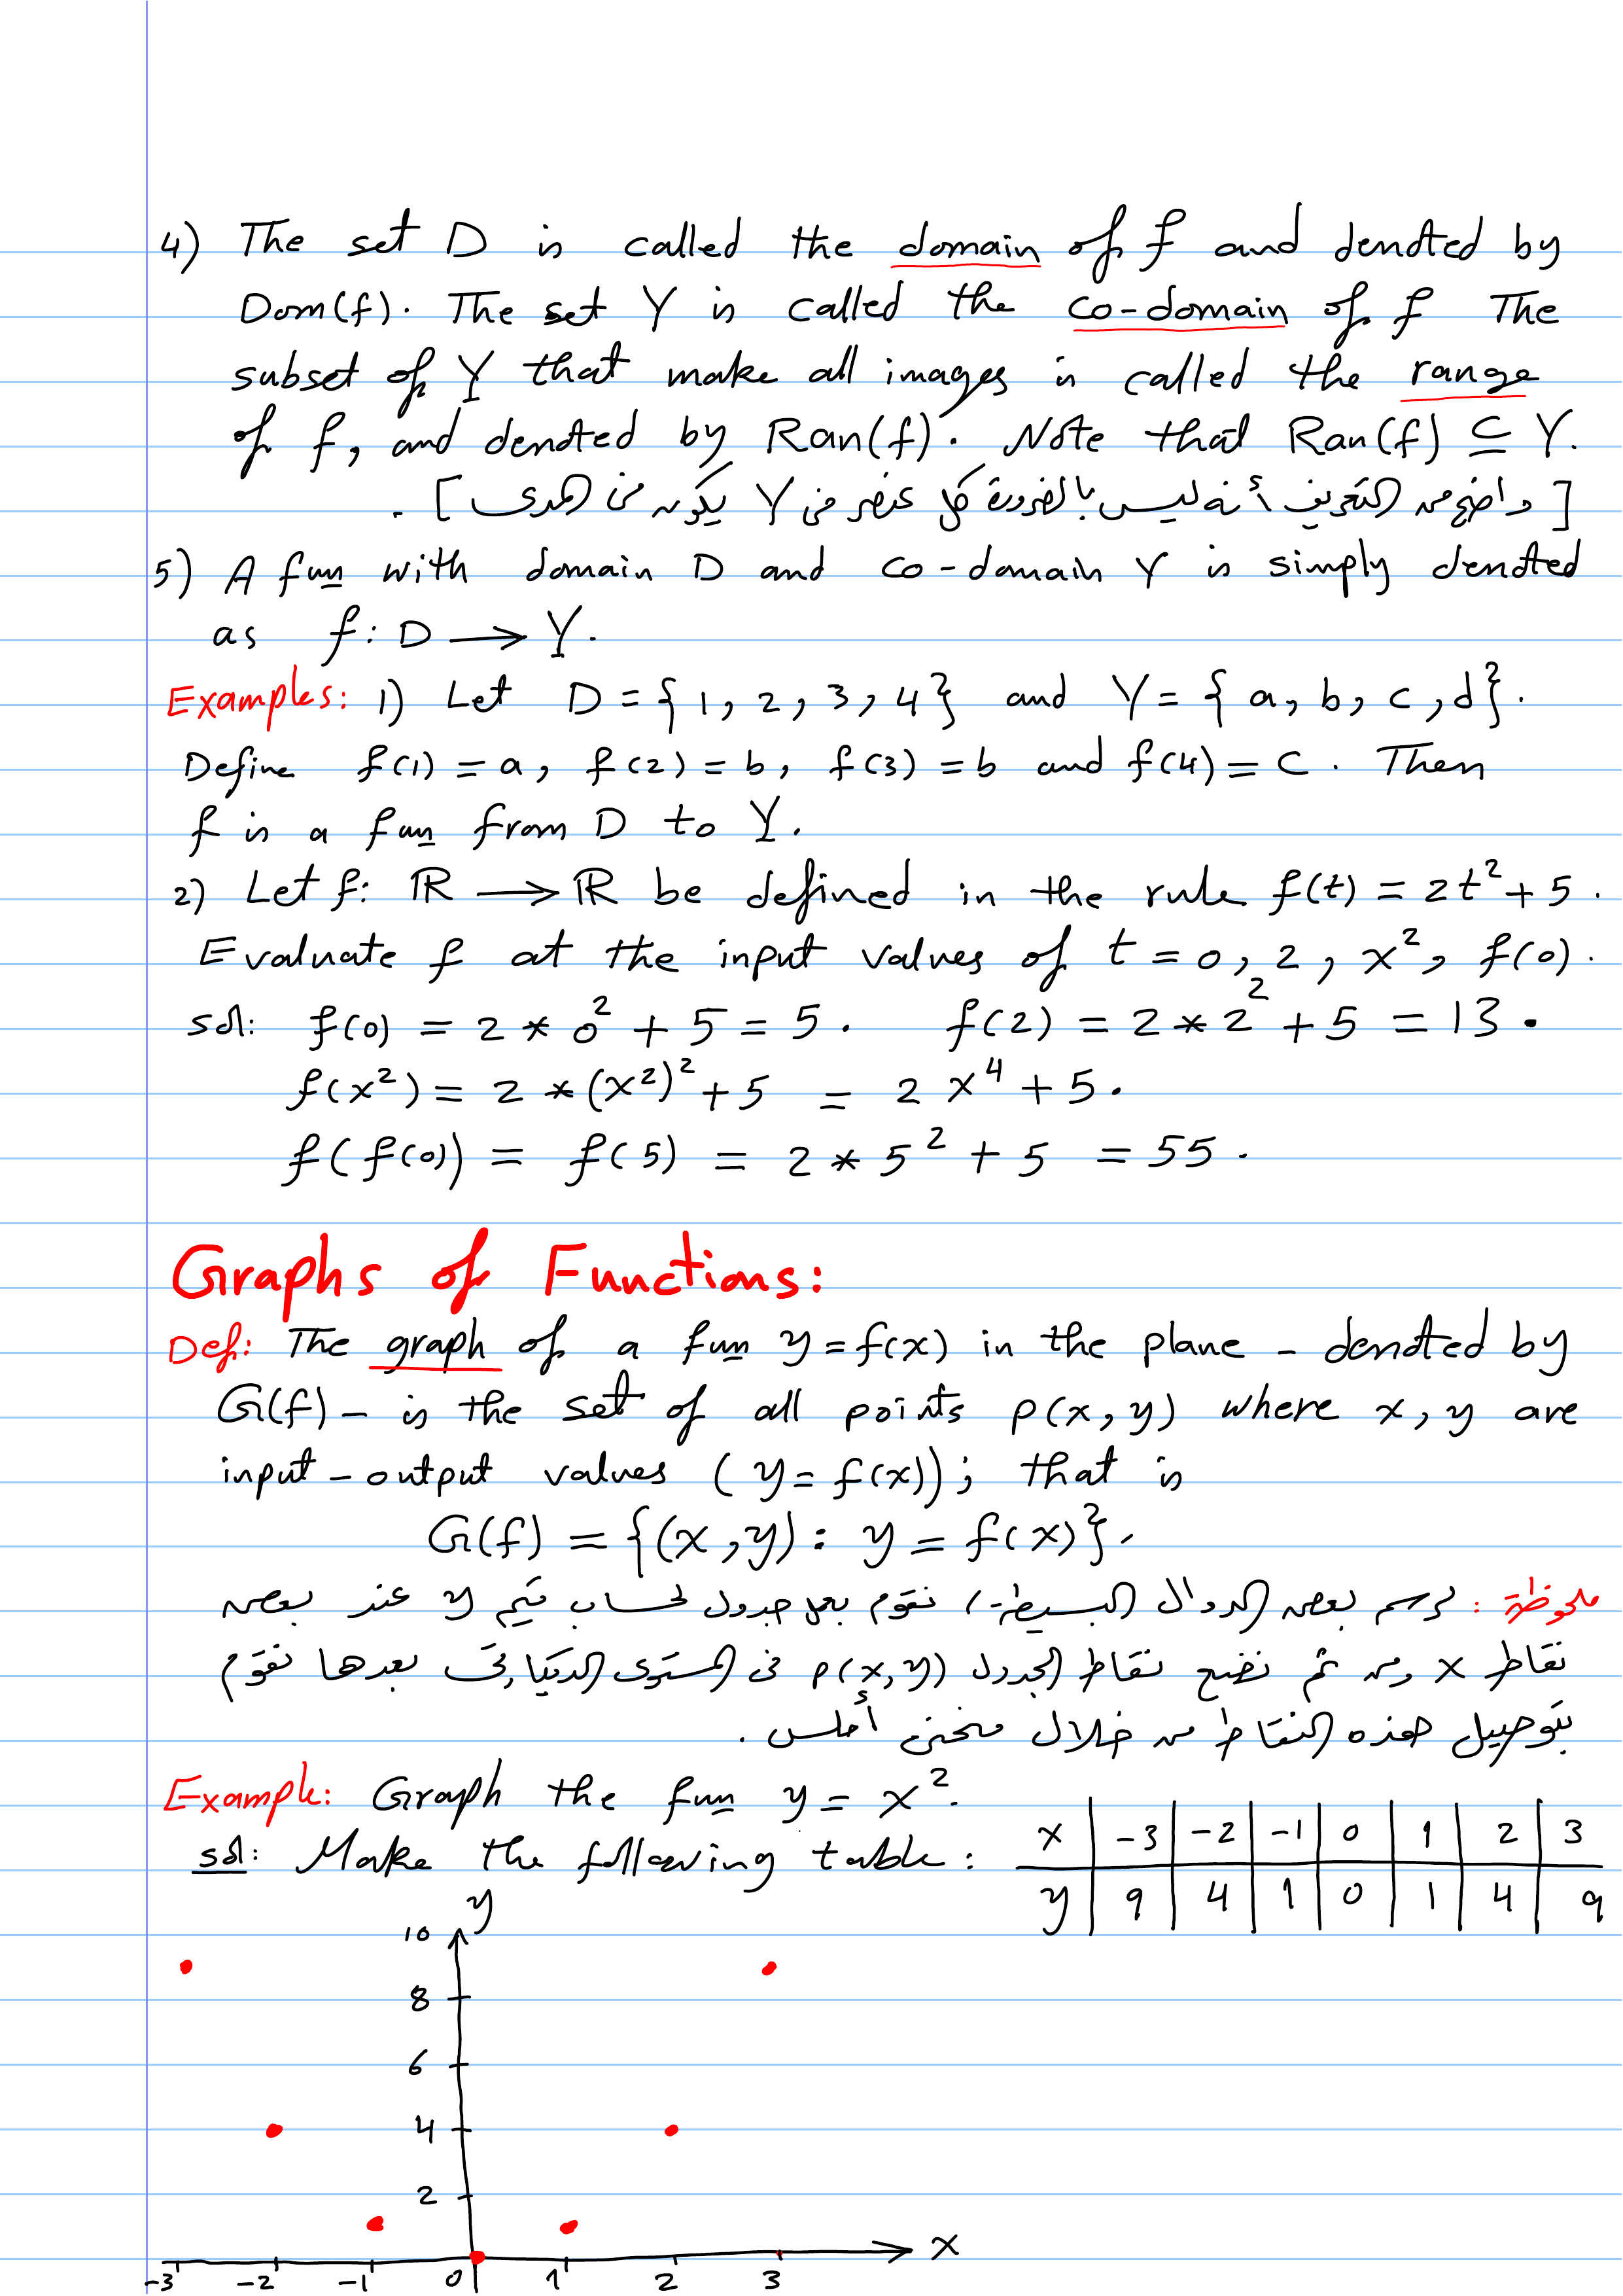 4) The set D is called the domain of f and denoted by
Dom(f). The set Y is called the co-domain of f The
subset of Y that make all images is called the range
of f, and denoted by Ran(f). Note that Ran(f) ⊆ Y.
[واضح من التعريف أنه ليس بالضرورة كل عنصر في Y يكون في المدى].
5) A fun with domain D and co-domain Y is simply denoted
as f: D → Y.
Examples: 1) Let D = {1, 2, 3, 4} and Y = {a, b, c, d}.
Define f(1) = a, f(2) = b, f(3) = b and f(4) = c. Then
f is a fun from D to Y.
2) Let f: ℝ → ℝ be defined in the rule f(t) = 2t² + 5.
Evaluate f at the input values of t = 0, 2, x², f(0).
sol: f(0) = 2 * 0² + 5 = 5. f(2) = 2 * 2² + 5 = 13.
f(x²) = 2 * (x²)² + 5 = 2x⁴ + 5.
f(f(0)) = f(5) = 2 * 5² + 5 = 55.
Graphs of Functions:
Def: The graph of a fun y = f(x) in the plane - denoted by
G(f) - is the set of all points p(x, y) where x, y are
input-output values (y = f(x)); that is
G(f) = {(x, y): y = f(x)}.
ملحوظة: لرسم بعض الدوال البسيطة، نقوم بعمل جدول لحساب قيم y عند بعض
نقاط x ومن ثم نضع نقاط الجدول p(x, y) في المستوى الديكارتى بعدها نقوم
بتوصيل هذه النقاط من خلال منحنى أملس.
Example: Graph the fun y = x².
sol: Make the following table:
x -3 -2 -1 0 1 2 3
y 9 4 1 0 1 4 9
y
10
8
6
4
2
x
-3 -2 -1 0 1 2 3